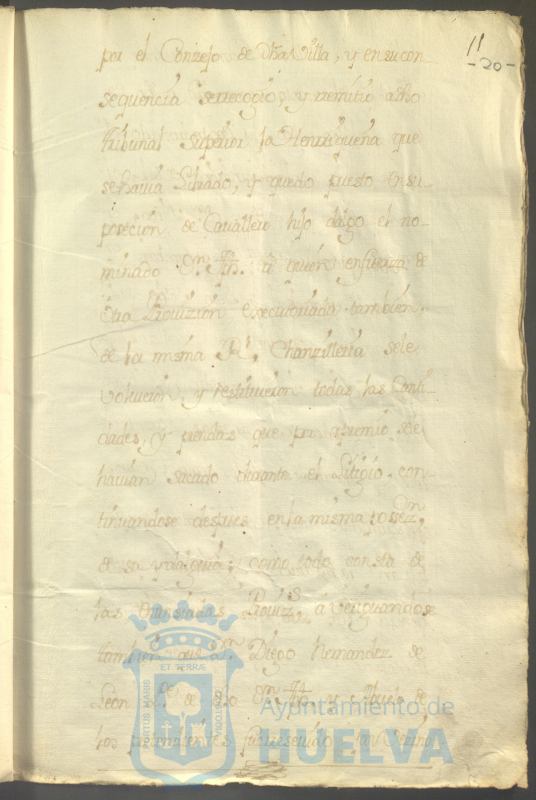 11
-20-
por el Conzejo de Dha Villa, y en su con-
sequencia se recogio, y remitio a dho
tribunal Superior la Henrriqueña que
se havia Librado, y quedo puesto en su
posecion de Cavallero hijo dalgo el no-
minado Dn. Jph. a quien en fuerza de
otra Provizion executoriada tambien,
de la misma Rl. Chanzilleria se le
volvieron, y restituieron todas las Canti-
dades, y prendas que por apremio se
havian sacado durante el Litigio, con-
tinuandose despues en la misma possen.
de su ydalguia; como todo consta de
las enunsiadas Proviz.s averiguandose
tambien que Dn. Diego Hernandez de
Leon Pe. de dho Dn. Jph. y Abuelo de
los pretendientes
PORTUS MARIS
ET TERRAE
CUSTODIA
Ayuntamiento de
HUELVA